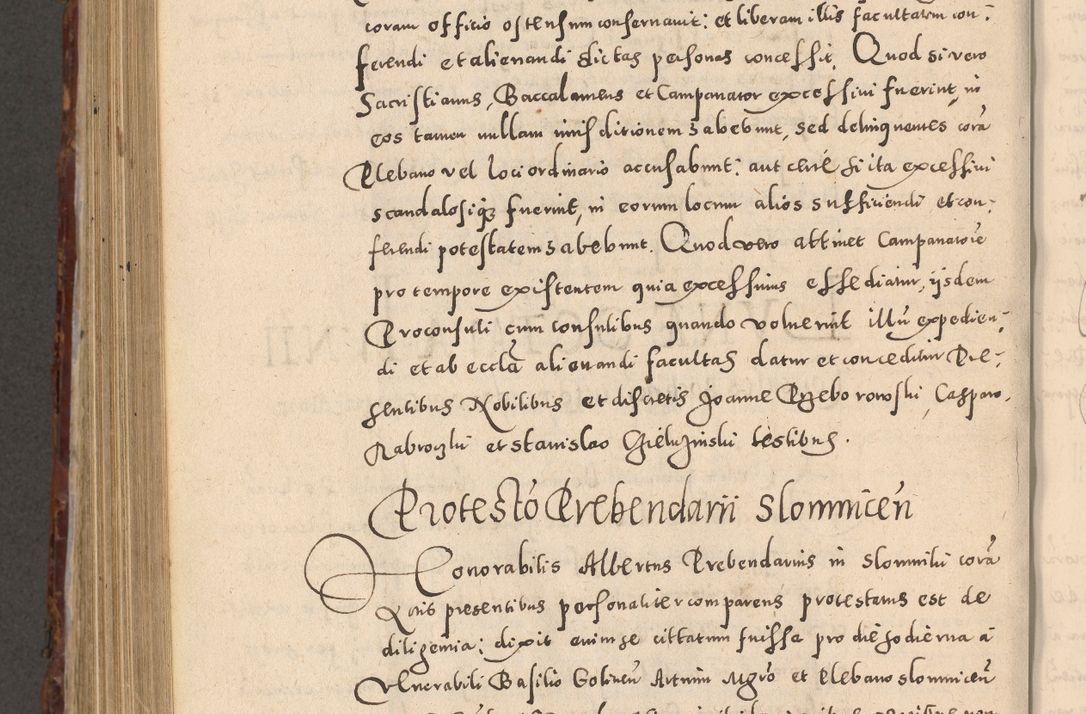 coram officio ostensum confernavit: et liberam illis facultatem con:
ferendi et alienandi dictas personas concessit. Quod si vero
Sacristianus, Baccalaureus et Campanator excessivi fuerint, in
eos tamen nullam iurisditionem habebunt, sed delinquentes corā
Plebano vel loci ordinario accusabunt: aut certe si ita excessivi
scandalosiq3 fuerint, in eorum locum alios sufficiendi et con:
ferendi potestatem habebunt. Quod vero attinet Campanatorē
pro tempore existentem quia excessivus esse diciatur, ijsdem
Proconsuli cum consulibus quando voluerint illū expedien:
di et ab ecclā alienandi facultas datur et conceditur Pre:
sentibus Nobilibus et discretis Joanne Przeborowski, Casparo
Nabroczki et Stanislao testibus.
Protestō Prebendarii Slomnicen̄
Honorabilis Albertus Prebendarius in Slomniki corā
Actis presentibus personaliter comparens protestatus est de
diligentia: dixit enim se cittatum fuisse pro die hodierna a
Venerabili Basilio Golinen̄ Artium Mgrō et Plebano Slomnicen̄